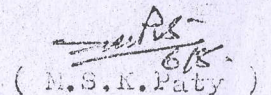 6/5
( M.S.K.Paty )